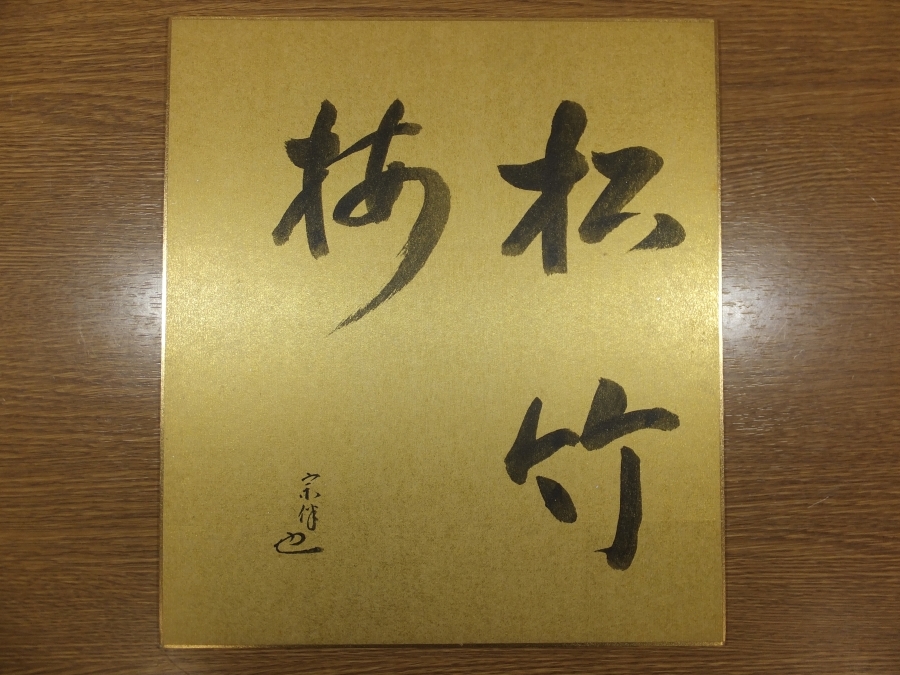 松竹
梅
宗伴